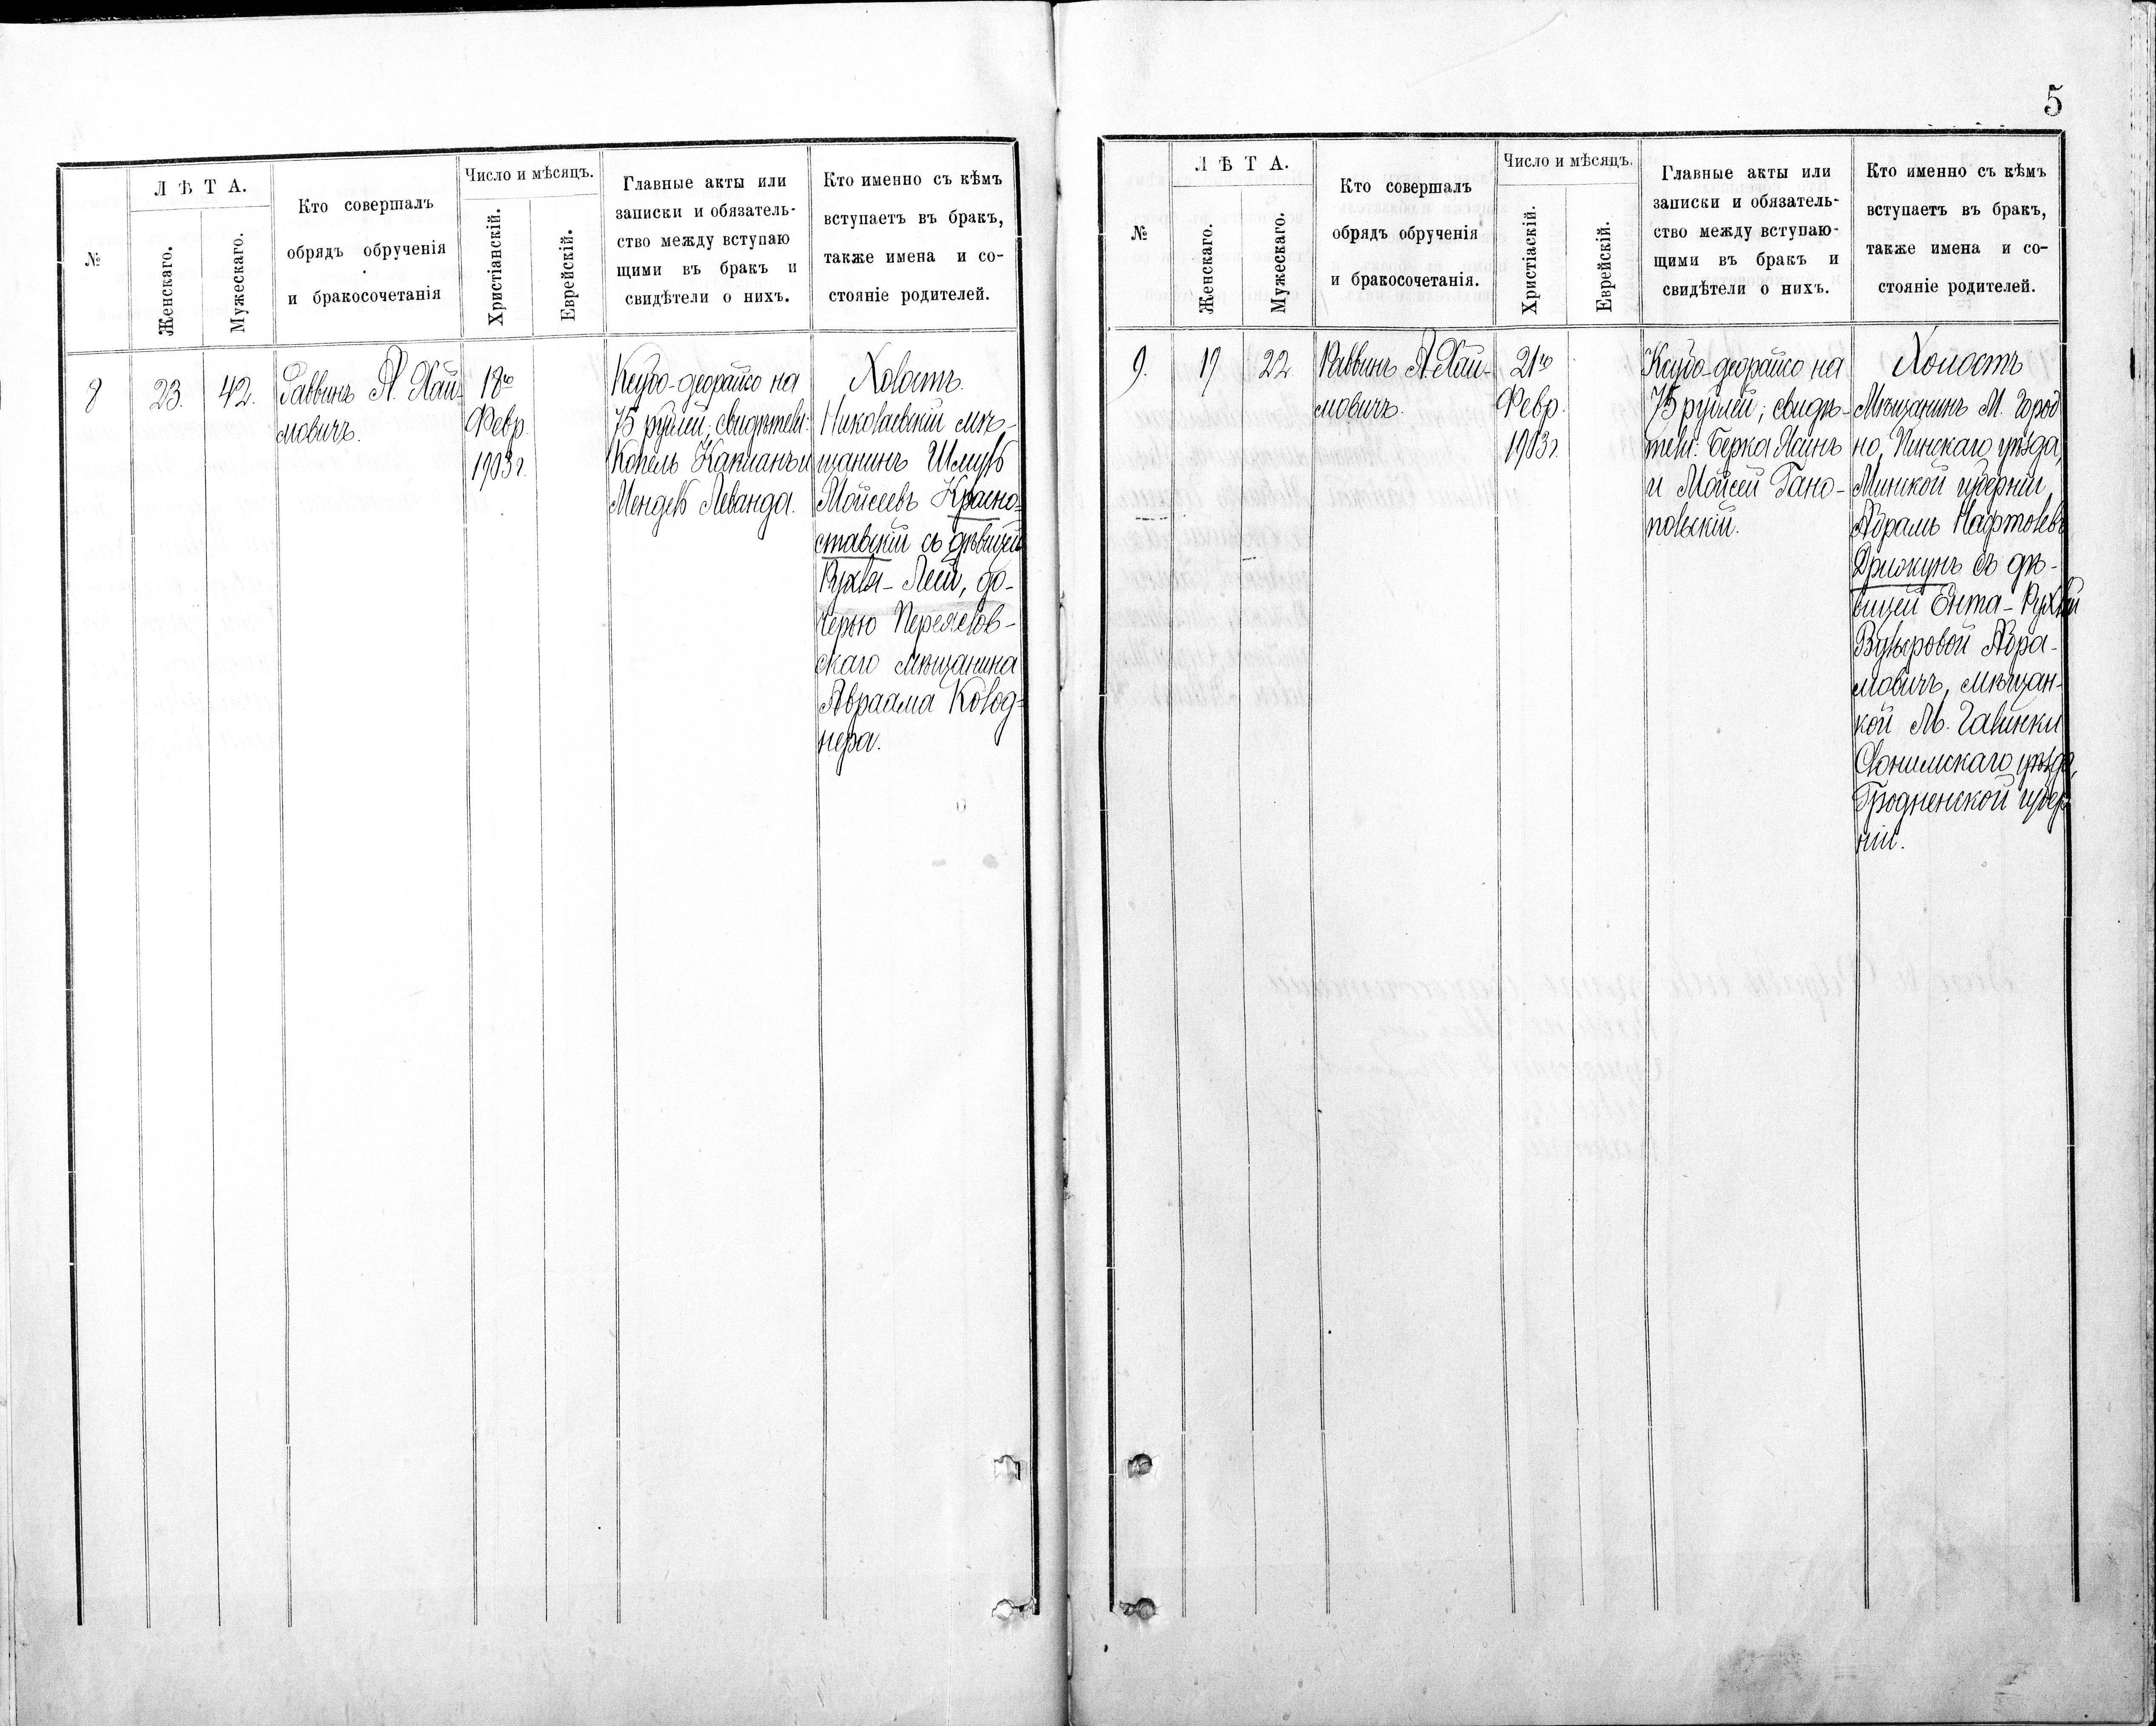 №
Л Ѣ Т А.
Женскаго.
Мужескаго.
Кто совершалъ
обрядъ обрученія
и бракосочетанія
Число и мѣсяцъ.
Христіанскій.
Еврейскій.
Главные акты или
записки и обязатель-
ство между вступаю
щими въ бракъ и
свидѣтели о нихъ.
Кто именно съ кѣмъ
вступаетъ въ бракъ,
также имена и со-
стояніе родителей.
8
23.
42.
Раввинъ А. Хаи-
мовичъ.
18го
Февр.
1903 г.
Ксубо-деорайсо на
75 рублей; свидѣтели:
Копель Капланъ и
Мендель Леванда.
Холостъ.
Николаевскій мѣ-
щанинъ Шмуль
Мойсеевъ Красно-
ставскій съ дѣвицей
Рухля-Леей, до-
черью Переяслов-
скаго мѣщанина
Авраама Колод-
нера.
5
№
Л Ѣ Т А.
Женскаго.
Мужескаго.
Кто совершалъ
обрядъ обрученія
и бракосочетанія.
Число и мѣсяцъ.
Христіаскій.
Еврейскій.
Главные акты или
записки и обязатель-
ство между вступаю-
щими въ бракъ и
свидѣтели о нихъ.
Кто именно съ кѣмъ
вступаетъ въ бракъ,
также имена и со-
стояніе родителей.
9.
19
22
Раввинъ А. Хаи-
мовичъ.
21го
Февр.
1903 г.
Ксубо-деорайсо на
75 рублей; свидѣ-
тели: Берка
и Мойсей Гано-
польскій.
Холостъ
Мѣщанинъ М. Город
но, Пинскаго уѣзда,
Минской губерніи
Абрамъ Нафтолевъ
съ дѣ-
вицей Ента-Рухлей
Абра-
мовичъ, мѣщан-
кой М.
Слонимскаго уѣзда,
Гродненской губер-
ніи.